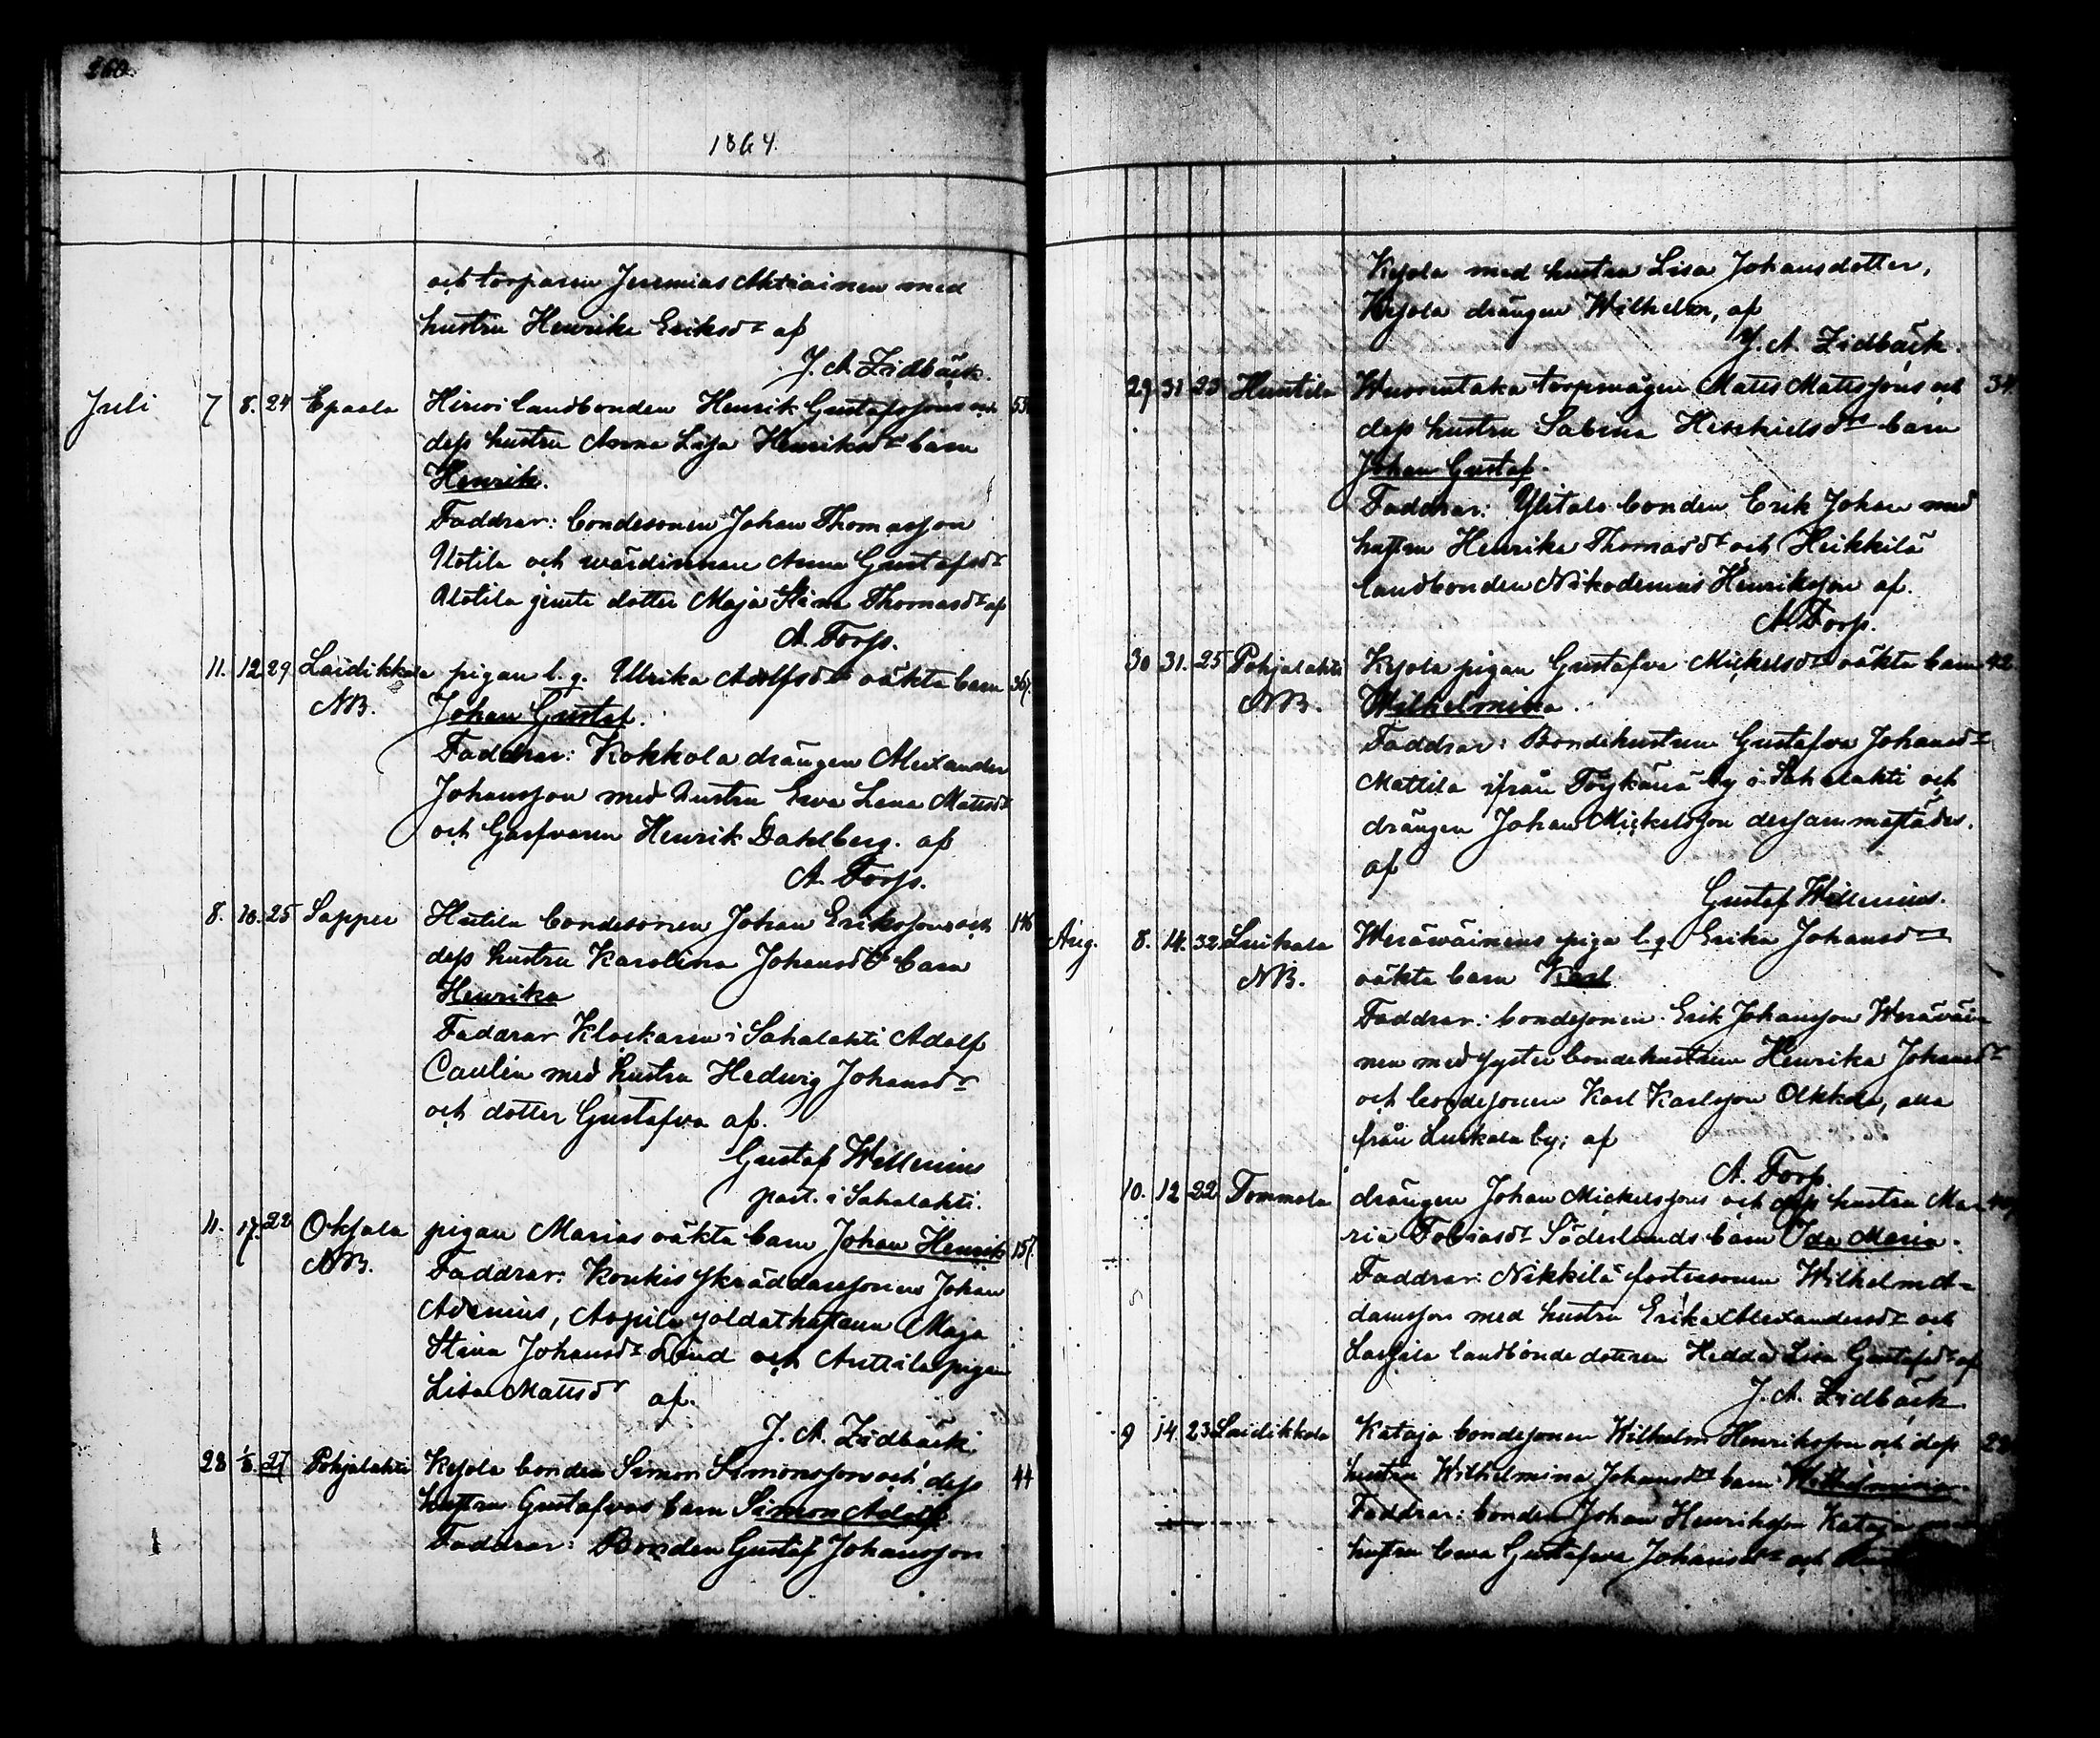 260.
1864.
och torparen Jeremias Aktiainen med
hustru Henrika Eriksdr af
J. A. Zidbäck.
Juli 7 8. 24 Epaala Hirvi landbonden Henrik Gustafssons och 53
dess hustru Anna Lisa Henriksdr barn
Henrik.
Faddrar: bondesonen Johan Thomasson
Uotila och wärdinnan Anna Gustafsdr
Uotila jemte dotter Maja Stina Thomasdr af
A. Forss.
11. 12 29 Laidikkala pigan l. q. Ulrika Adolfsdr oäkta barn 367.
NB. Johan Gustaf.
Faddrar: Kokkola drängen Alexander
Johansson med hustru Ewa Lena Mattsdr
och Garfvaren Henrik Dahlberg. af
A. Forss.
8. 10. 25 Sappee Hutila bondesonen Johan Erikssons och 146
dess hustru Karolina Johansdr barn
Henrika
Faddrar Klockaren i Sahalahti Adolf
Caulin med hustru Hedwig Johansdr
och dotter Gustafva af.
Gustaf Willenius
past. i Sahalahti.
11. 17. 22 Ohjala pigan Marias oäkta barn Johan Henrik 157.
NB. Faddrar: Koukis skräddaresonen Johan
Adenius, soldathustrun Maja
Stina Johansdr Lind och Anttila pigan
Lisa Mattsdr af.
J. A. Zidbäck
28 1/8. 27 Pohjalahti Kejola bonden Simon Simonsson och dess 44
hustru Gustafvas barn Simon Adolf
Faddrar: Bonden Gustaf Johansson
Kejola med hustru Lisa Johansdotter,
Kejola drängen Wilhelm, af
J. A. Zidbäck.
29 31 23 Huntila Wuorentaka torpmågen Matts Mattssons och 34
dess hustru Sabina Heskielsdr barn
Johan Gustaf.
Faddrar: Ylitalo bonden Erik Johan med
hustru Henrika Thomasdr och Heikkilä
landbonden Nikodemus Henriksson af.
A. Forss.
30 31. 25 Pohjalahti Kejola pigan Gustafva Mickelsdr oäkta barn 42
NB. Wilhelmina.
Faddrar: Bondehustrun Gustafva Johansdr
Mattila ifrån Töykänä by i Sahalahti och
drängen Johan Mickelsson dersammastädes.
af
Gustaf Willenius.
Aug. 8. 14. 32 Luikala Weräwäinens piga l. q. Erika Johansdr
NB. oäkta barn Karl
Faddrar: bondesonen Erik Johansson Weräväi
nen med syster bondehustrun Henrika Johansdr
och bondesonen Karl Karlsson Okkola, alla
från Luikala by; af
A. Forss.
10. 12 22 Tommola drängen Johan Mickelssons och dess hustru Ma-
ria Tobiasdr Söderlunds barn Ida Maria.
Faddrar: Nikkilä fostersonen Wilhelm A-
damsson med hustru Erika Alexandersdr och
landbonde dottren Hedda Lisa Gustafsdr af
J. A. Zidbäck
9 14. 23 Laidikkala Kataja bondesonen Wilhelm Henriksson och dess
hustru Wilhelmina Johansdr barn Wilhelmina.
Faddrar: bonden Johan Henriksson Kataja
hustru Ewa Gustafva Johansdr och